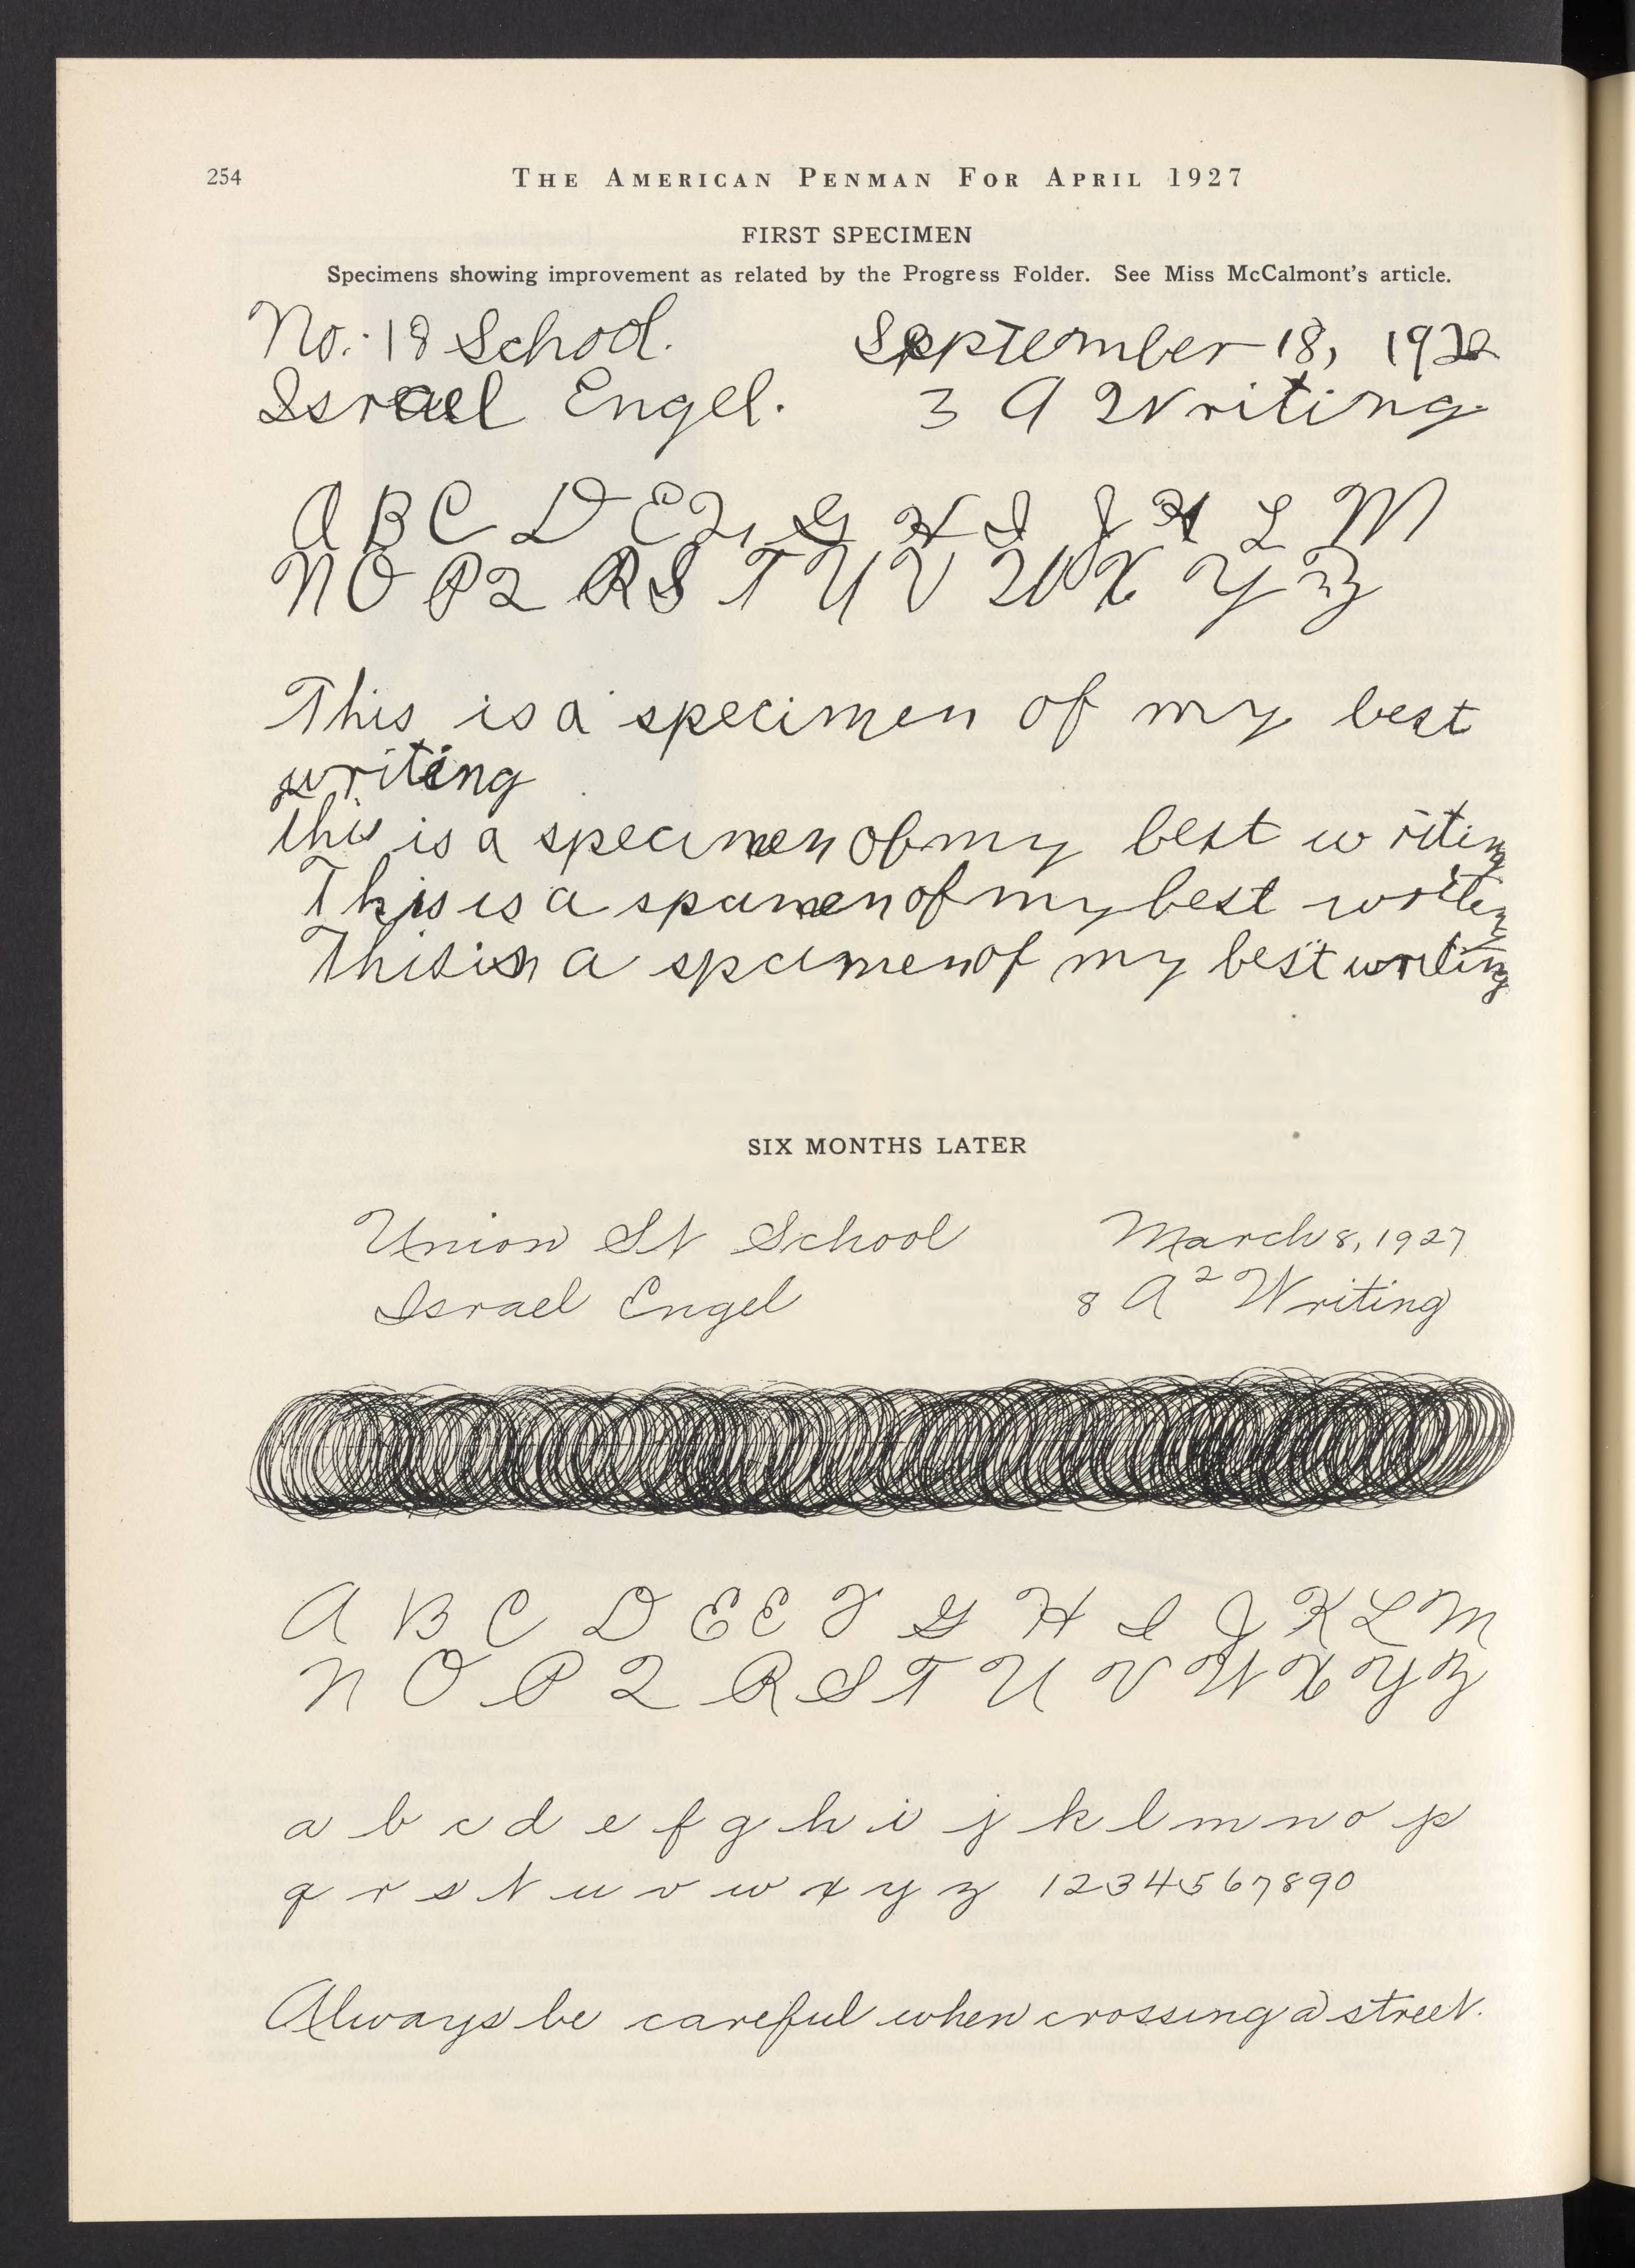 254
THE AMERICAN PENMAN FOR APRIL 1927
FIRST SPECIMEN
Specimens showing improvement as related by the Progress Folder. See Miss McCalmont's article.
No. 18 School. September 18, 1922
Israel Engel. 3 A Writing
A B C D E F G H I J K L M
N O P Q R S T U V W X Y Z
This is a specimen of my best
writing
this is a specimen of my best writing
This is a spcimen of my best writing
This is a spcimen of my best writing
SIX MONTHS LATER
Union St School March 8, 1927
Israel Engel 8 A2 Writing
A B C D E E F G H I J K L M
N O P Q R S T U V W X Y Z
a b c d e f g h i j k l m n o p
q r s t u v w x y z 1234567890
Always be careful when crossing a street.